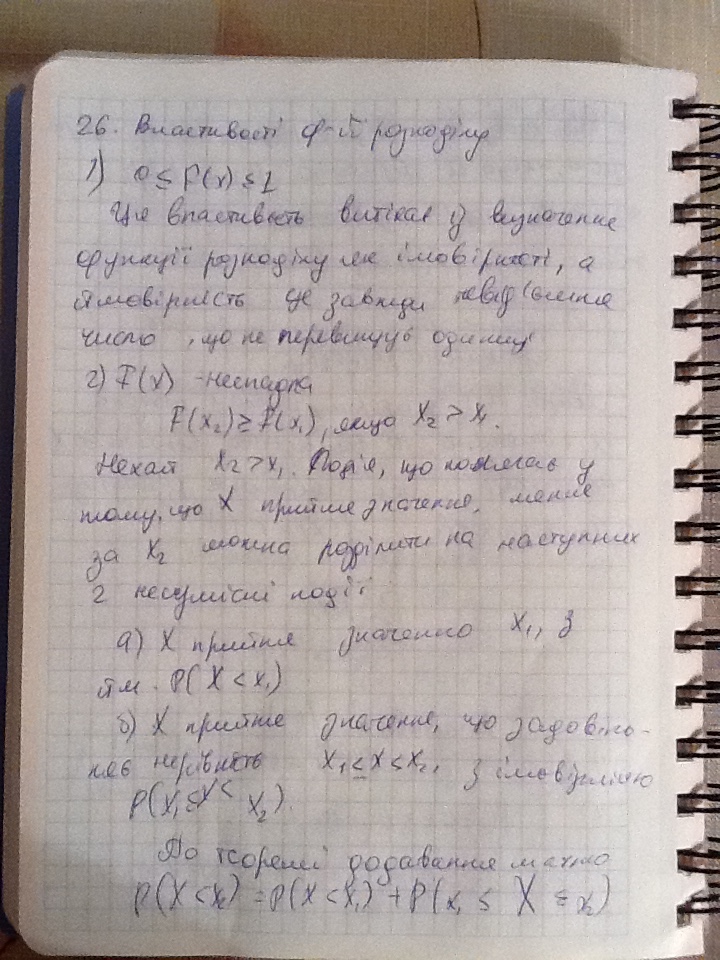 26. Властивості ф-ії розподілу
1) 0 ≤ F(x) ≤ 1
Ця властивість витікає з визначення
функції розподілу як імовірності, а
імовірність це завжди невід'ємне
число, що не перевищує одиницу.
2) F(x) - неспадна
F(x₂) ≥ F(x₁), якщо x₂ > x₁
Нехай x₂ > x₁. Подію, що полягає у
тому, що X прийме значення, менше
за x₂ можна розділити на наступних
2 несумісні події
а) X прийме значення x₁, з
P(X < x₁)
X прийме значення, що задоволь-
няє нерівність x₁ ≤ X < x₂, з імовірністю
P(x₁ ≤ X < x₂).
По теоремі додавання маємо
P(X < x₂) = P(X < x₁) + P(x₁ ≤ X ≤ x₂)